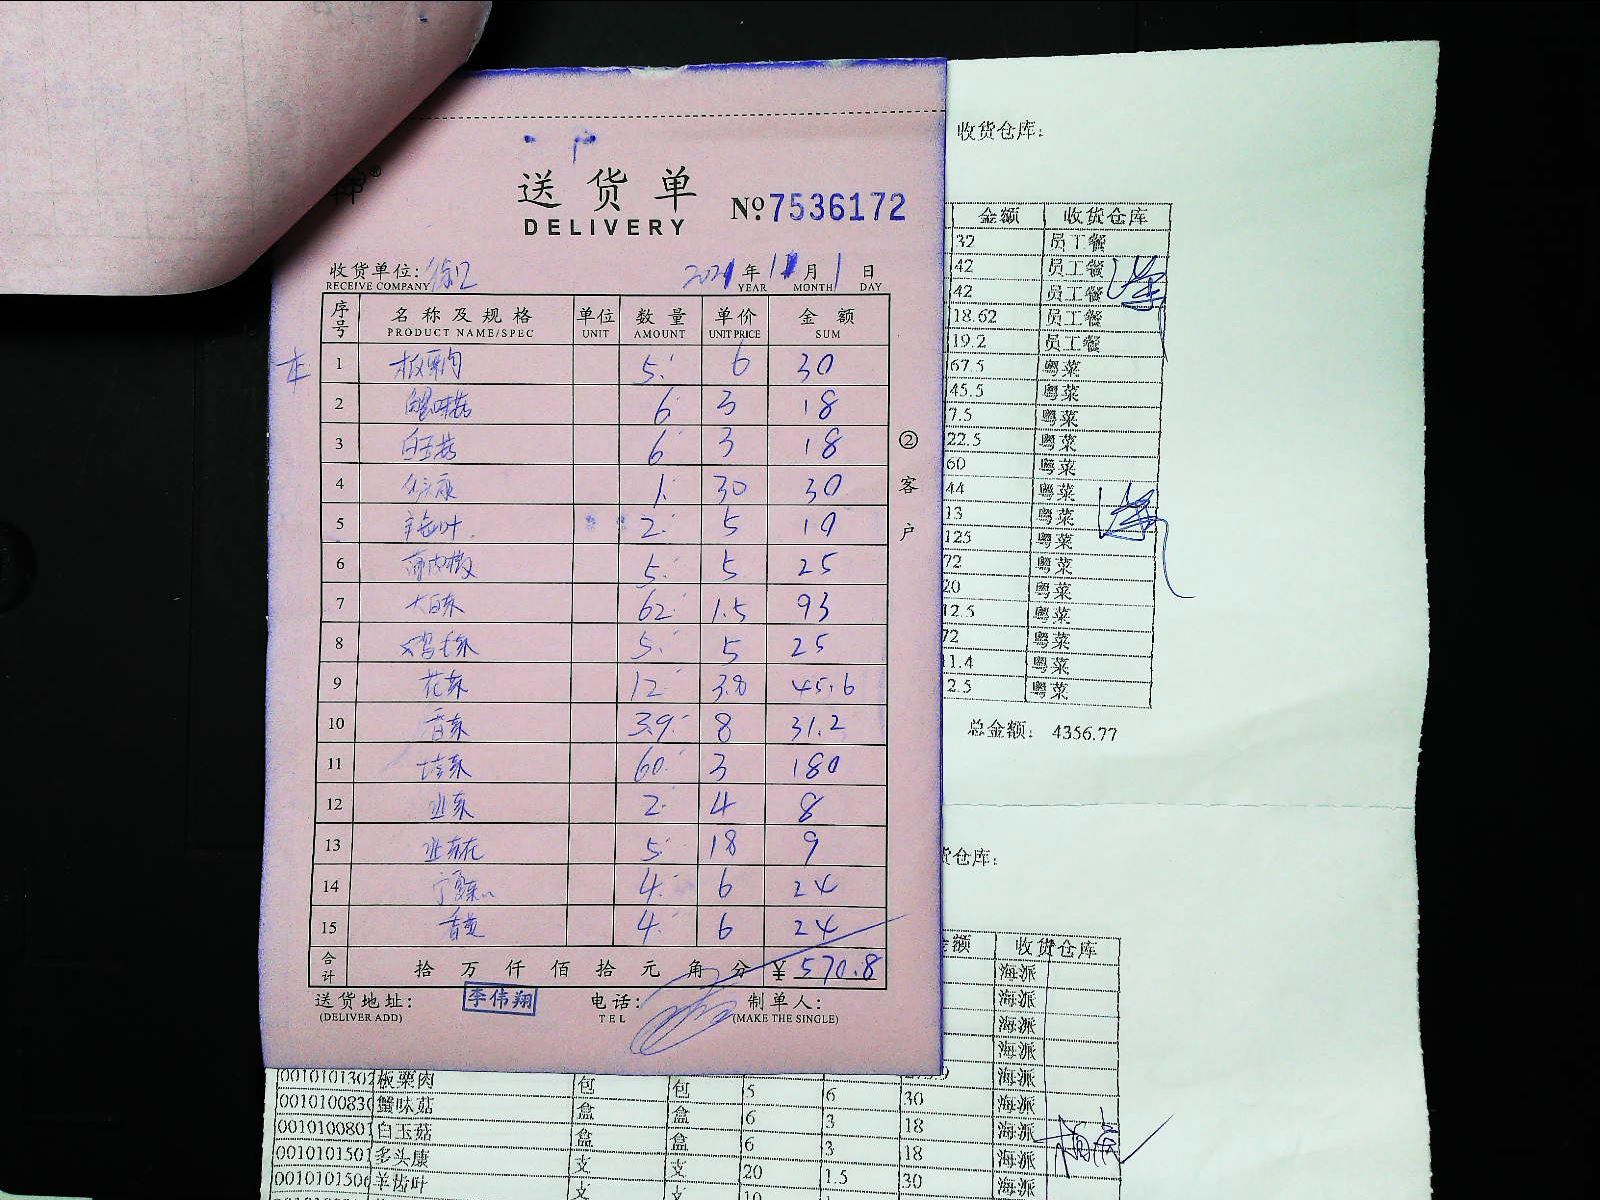 送货单
DELIVERY
№ 7536172
收货单位: 徐汇
RECEIVE COMPANY
2021 年 11 月 1 日
YEAR MONTH DAY
序号 名称及规格 单位 数量 单价 金额
PRODUCT NAME/SPEC UNIT AMOUNT UNIT PRICE SUM
1 板栗肉 5 6 30
2 蟹味菇 6 3 18
3 白玉菇 6 3 18
4 1 30 30
5 2 5 10
6 5 5 25
7 62 1.5 93
8 鸡毛菜 5 5 25
9 花菜 12 3.8 45.6
10 香菜 3.9 8 31.2
11 60 3 180
12 2 4 8
13 5 18 9
14 4 6 24
15 4 6 24
合计 拾 万 仟 佰 拾 元 角 分 ¥ 570.8
送货地址: 李伟翔 电话: 制单人:
(DELIVER ADD) TEL (MAKE THE SINGLE)
② 客户
收货仓库:
金额 收货仓库
32 员工餐
42 员工餐
42 员工餐
18.62 员工餐
19.2 员工餐
67.5 粤菜
45.5 粤菜
7.5 粤菜
22.5 粤菜
60 粤菜
44 粤菜
13 粤菜
125 粤菜
72 粤菜
20 粤菜
12.5 粤菜
72 粤菜
11.4 粤菜
2.5 粤菜
总金额: 4356.77
货仓库:
金额 收货仓库
海派
海派
海派
海派
0010101302 板栗肉 包 包 5 6 30 海派
0010100830 蟹味菇 盒 盒 6 3 18 海派
0010100801 白玉菇 盒 盒 6 3 18 海派
0010101501 多头康 支 支 20 1.5 30 海派
0010101506 羊齿叶 支 支 10 海派